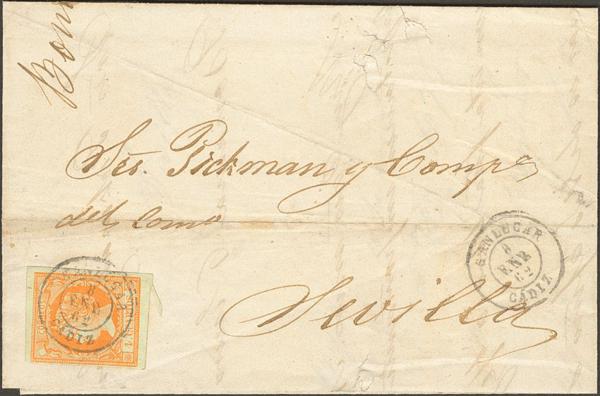 Sres. Pickman y Compª
del comº
Sevilla
S.ANLUCAR
8
ENE
62
CADIZ
SANLUCAR
8
ENE
62
CADIZ